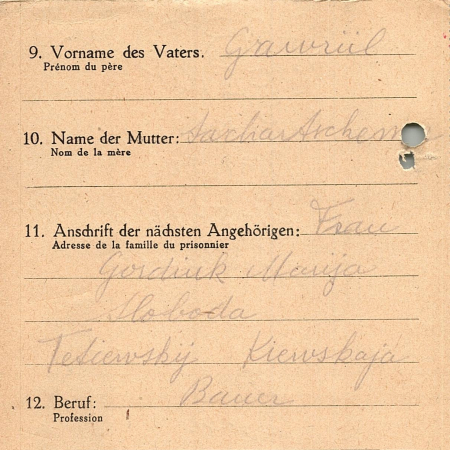 9. Vorname des Vaters. Gawriil
Prénom du père
10. Name der Mutter:
Nom de la mère
11. Anschrift der nächsten Angehörigen: Frau
Adresse de la famille du prisonnier
Gordiuk Marija
Sloboda
Tetiewskij Kiewskaja
12. Beruf: Bauer
Profession